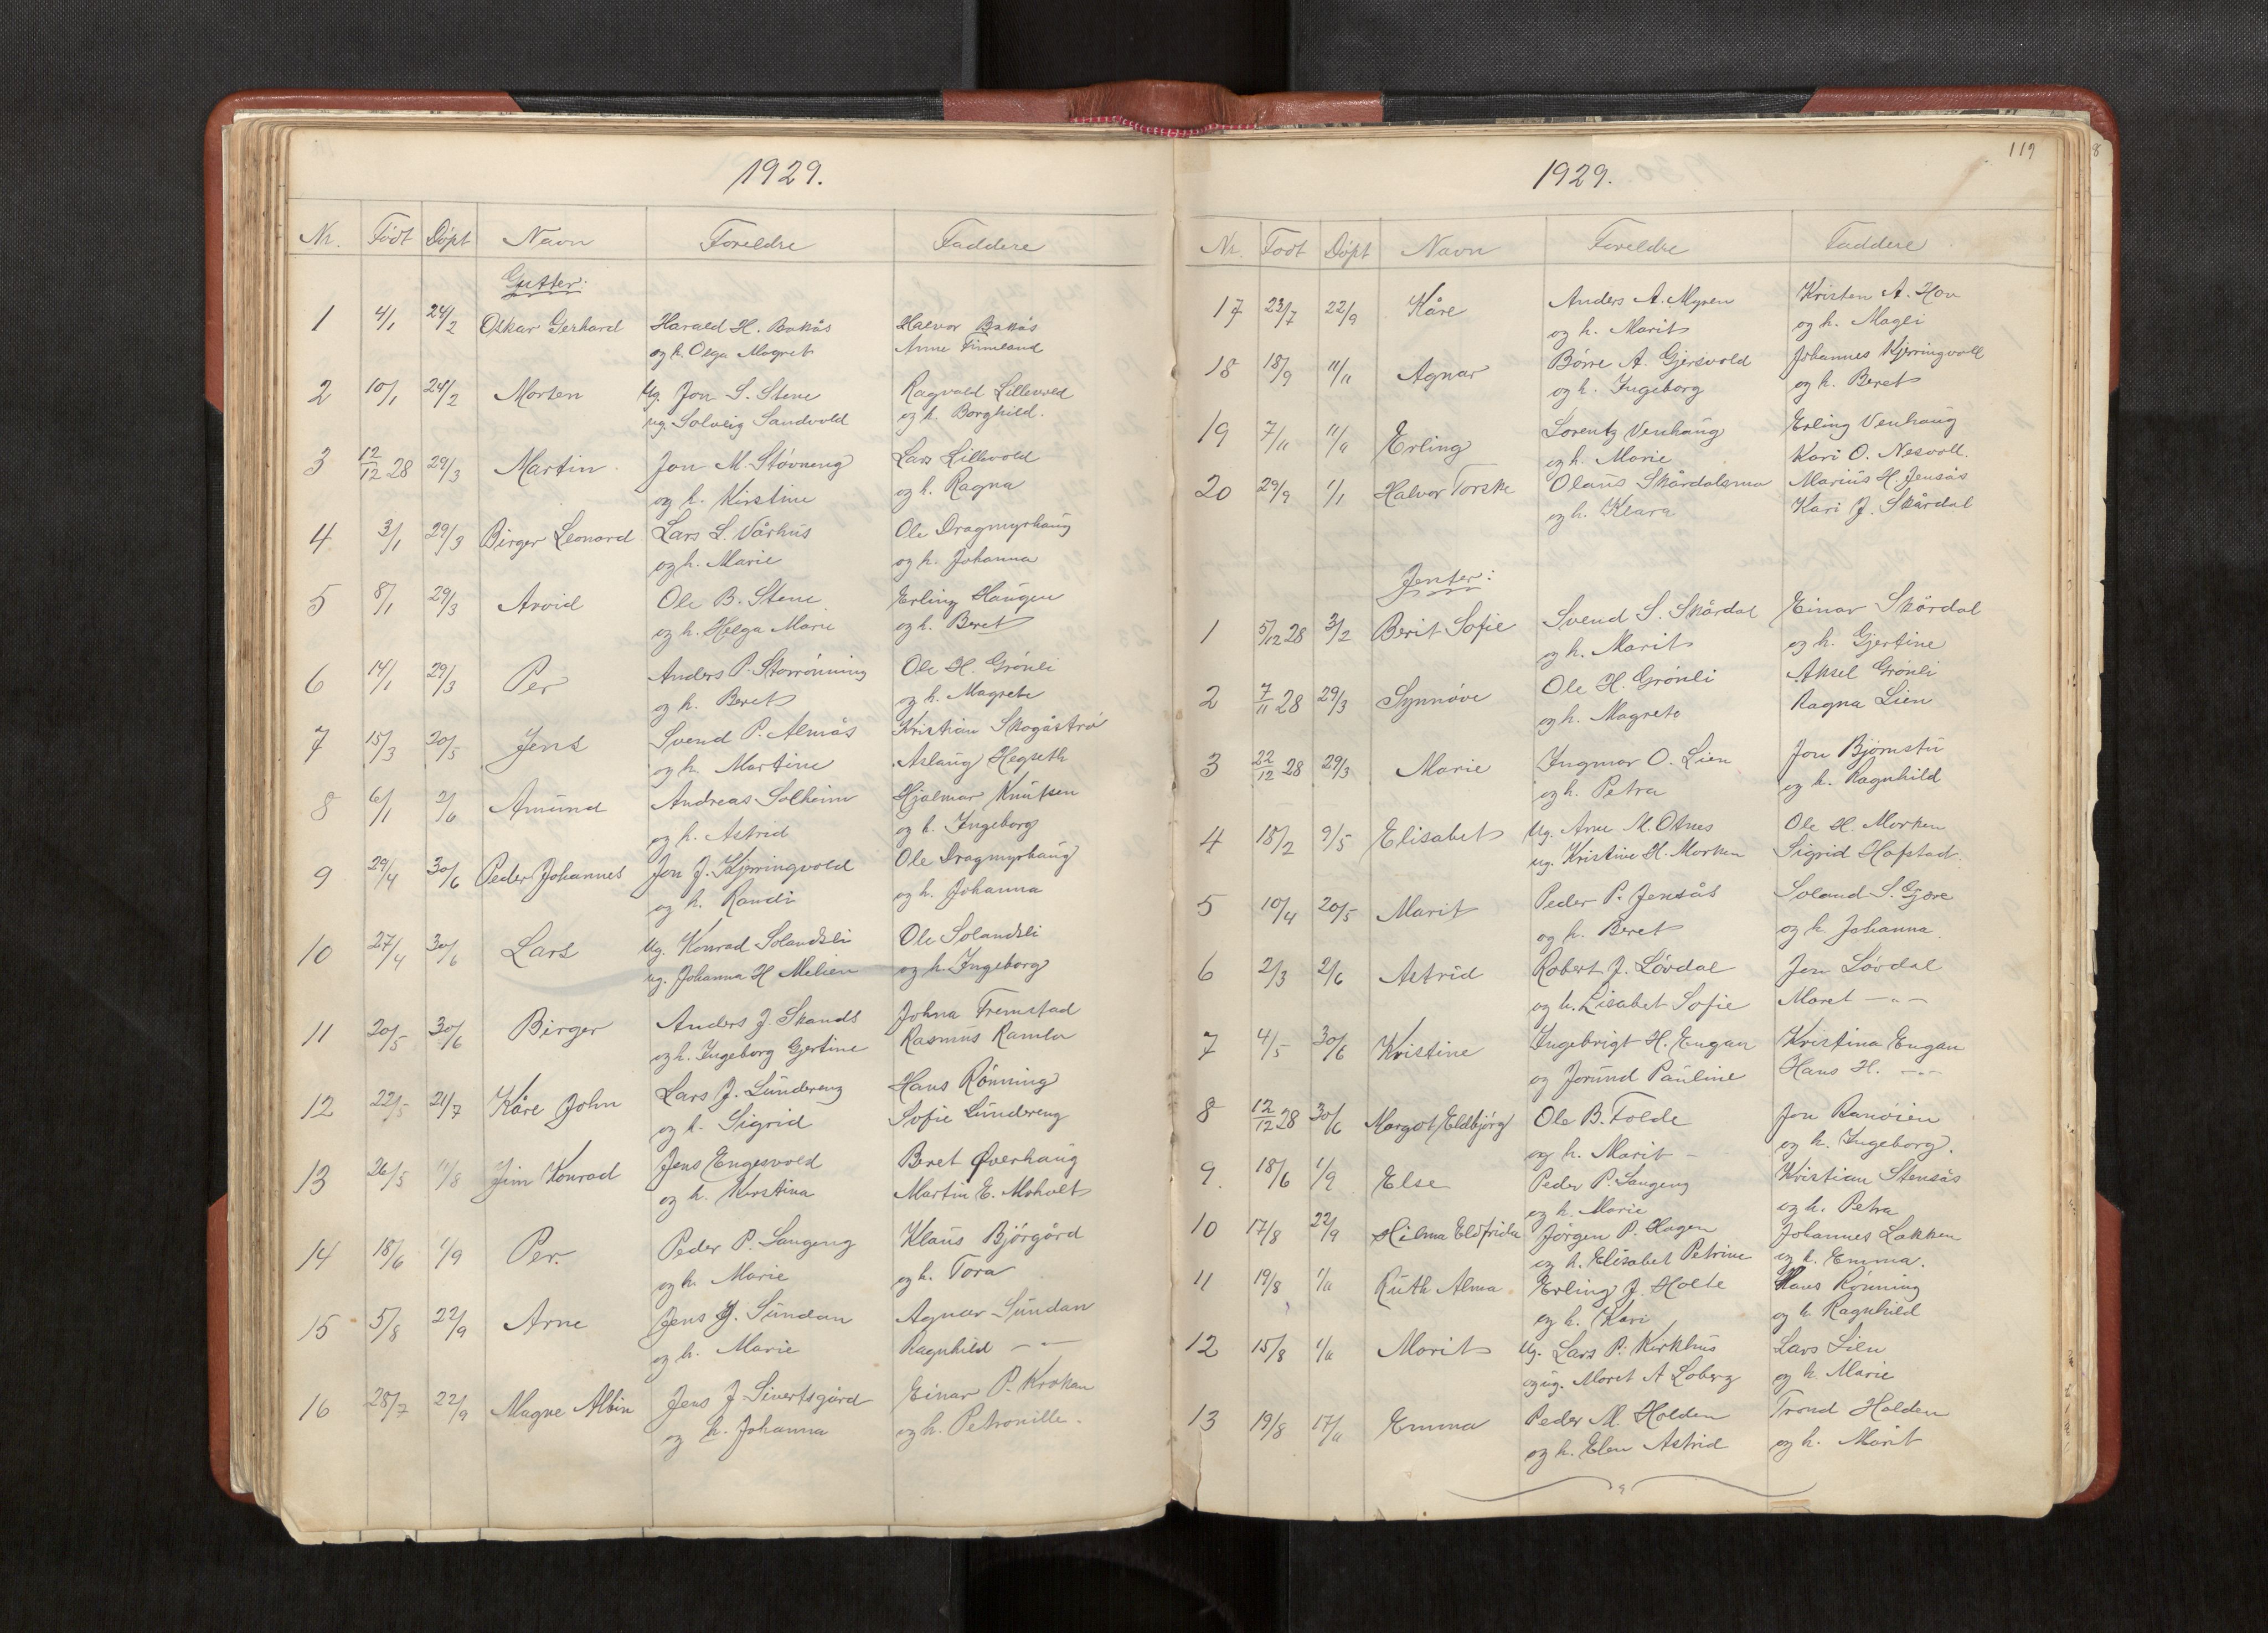 1929.
Nr. Født Døpt Navn Foreldre Faddere
Gutter:
1 4/1 24/2 Oskar Gerhard Harald H. Bakås Halvor Bakås
og h. Olga Magret Anne
2 10/1 24/2 Morten Ug. Jon S. Stene Ragvald Lillevold
ug. Solveig Sandvold og h. Borghild.
3 12/12 28 29/3 Martin Jon M. Støvneng Lars Lillevold
og h. Kirstine og h. Ragna
4 3/1 29/3 Birger Leonard Lars L. Vårhus Ole Dragmyrhaug
og h. Marie og h. Johanna
5 8/1 29/3 Arvid Ole B. Stene Erling Haugen
og h. Helga Marie og h. Beret
6 14/1 29/3 Per Anders P. Storrønning Ole H. Grønli
og h. Beret og h. Magrete
7 15/3 20/5 Jens Svend P. Almås Kristian Skogåstrø
og h. Martine Aslaug Hegseth
8 6/1 2/6 Amund Andreas Solheim Hjalmar Knutsen
og h. Astrid og h. Ingeborg
9 29/4 30/6 Peder Johannes Jon J. Kjerringvold Ole Dragmyrhaug
og h. Randi og h. Johanna
10 27/4 30/6 Lars Ug. Konrad Solandsli Ole Solandsli
ug. Johanna H Melien og h. Ingeborg
11 20/5 30/6 Birger Anders J. Skands Johna Fremstad
og h. Ingeborg Gjertine Rasmus Ramlo
12 22/5 21/7 Kåre John Lars J. Sundereng Hans Rønning
og h. Sigrid Sofie Sundereng
13 26/5 11/8 Jim Konrad Jens Engesvold Beret Øverhaug
og h. Kirstina Martin E. Moholt
14 18/6 1/9 Per. Peder P. Langeng Klaus Bjørgård
og h. Marie og h. Tora
15 5/8 22/9 Arne Jens J. Sundan Agnar Sundan
og h. Marie Ragnhild — " —
16 28/7 22/9 Magne Albin Jens J. Sivertsgård Einar P. Krokan
og h. Johanna og h. Petronille.
119
1929.
Nr. Født Døpt Navn Foreldre Faddere
17 23/7 22/9 Kåre Anders A. Myren Kristen A. Hov
og h. Marit og h. Magli
18 18/9 11/11 Agnar Børre A. Gjersvold Johannes Kjerringvoll
og h. Ingeborg og h. Beret
19 7/11 11/11 Erling Lorentz Venhaug Erling Venhaug
og h. Marie Kari O. Nesvoll.
20 29/9 1/1 Halvor Torske Olaus Skårdalsmo Marius H. Jensås
og h. Klara Kari J. Skårdal
Jenter:
1 5/12 28 3/2 Berit Sofie Svend S. Skårdal Einar Skårdal
og h. Marit og h. Gjertine
2 7/11 28 29/3 Synnøve Ole H. Grønli Aksel Grønli
og h. Magrete Ragna Lien
3 22/12 28 29/3 Marie Ingmar O. Lien Jon Bjørnstu
og h. Petra og h. Ragnhild
4 18/2 9/5 Elisabet Ug. Arne M. Osnes Ole H. Morken
ug. Kristine H. Morken Sigrid Hofstad.
5 10/4 20/5 Marit Peder P. Jensås Soland S. Gjøre
og h. Beret og h. Johanna.
6 2/3 2/6 Astrid Robert J. Løvdal Jon Løvdal
og h. Lisabet Sofie Maret — " —
7 4/5 30/6 Kristine Ingebrigt H. Engan Kristina Engan
og Jorund Pauline Hans H. — " —
8 12/12 28 30/6 Margot Eldbjørg Ole B. Folde Jon Ranøien
og h. Marit — og h. Ingeborg.
9. 18/6 1/9 Else Peder P. Langeng Kristian Stensås
og h. Marie og h. Petra
10 17/8 22/9 Hilma Eldfrida Jørgen P. Hagen Johannes Løkken
og h. Elisabet Petrine og h. Emma.
11 19/8 1/11 Ruth Alma Erling J. Holte Hans Rønning
og h. Kari og h. Ragnhild
12 15/8 1/11 Marit Ug. Lars P. Kirkhus Lars Lien
og ug. Maret A Loberg og h. Marie
13 19/8 17/11 Emma Peder M. Holden Trond Holden
og h. Elen Astrid og h. Marit